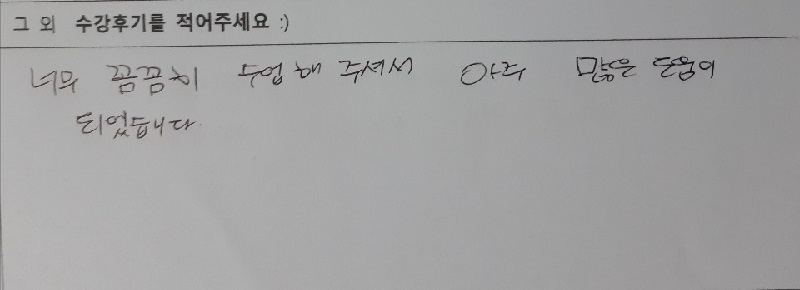 그 외 수강후기를 적어주세요 :)
너무 꼼꼼히 수업해 주셔서 아주 많은 도움이
되었습니다